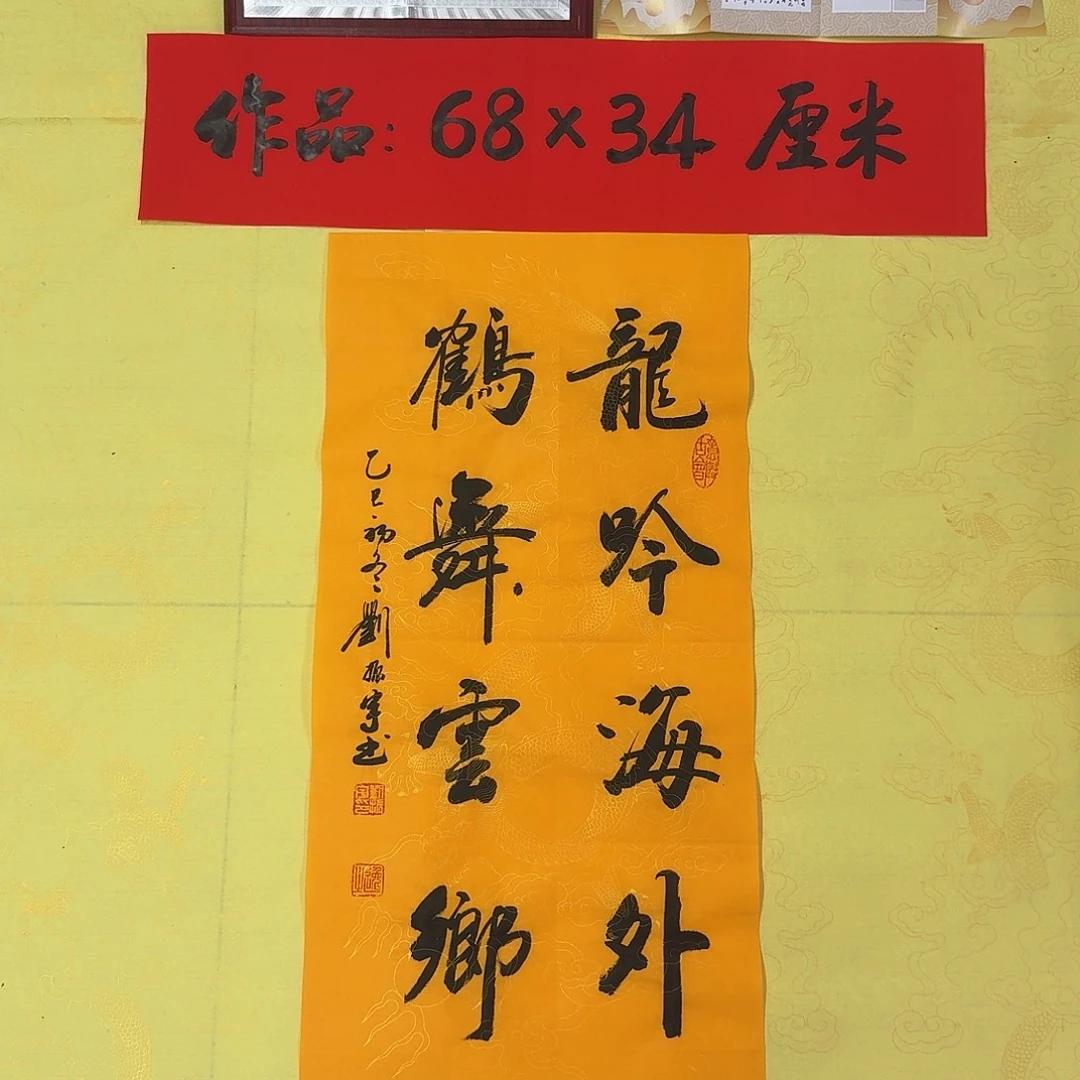 作品：68×34厘米
龍吟海外
鶴舞雲鄉
乙巳初冬劉振宇书